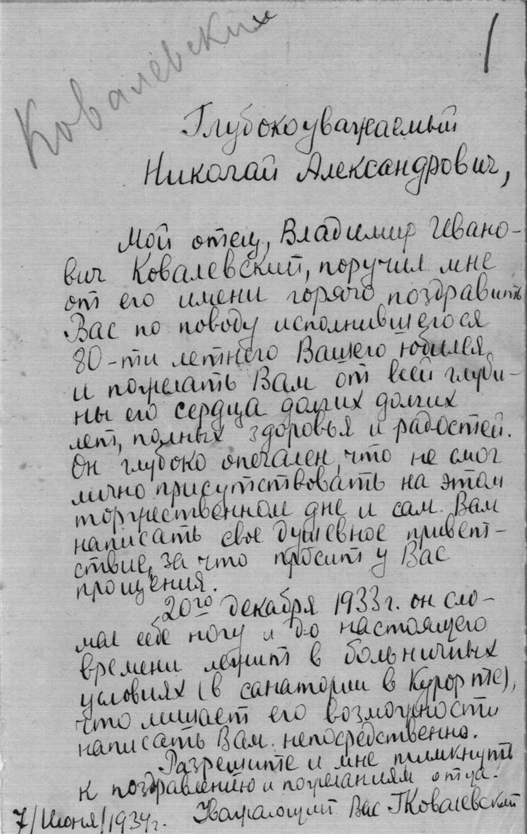 Ковалевский
1
Глубокоуважаемый
Николай Александрович,
Мой отец, Владимир Ивано-
вич Ковалевский, поручил мне
от его имени горячо поздравить
Вас по поводу исполнившегося
80-ти летнего Вашего юбилея
и пожелать Вам от всей глуби-
ны его сердца долгих долгих
лет, полных здоровья и радостей.
Он глубоко опечален, что не смог
лично присутствовать на этом
торжественном дне и сам Вам
написать свое душевное привет-
ствие, за что просит у Вас
прощения.
20го декабря 1933г. он сло-
мал себе ногу и до настоящего
времени лежит в больничных
условиях (в санатории в Курорте),
что лишает его возможности
написать Вам непосредственно.
Разрешите и мне примкнуть
к поздравлению и пожеланиям отца.
7/июня/1934г. Уважающий Вас ГКовалевский